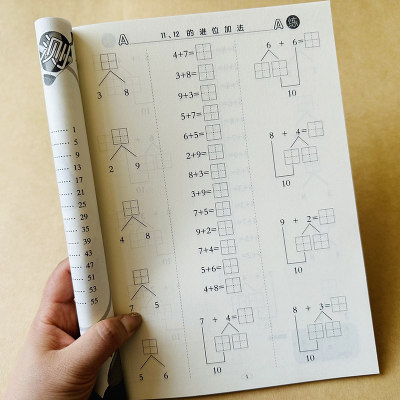 测
A 11、12 的进位加法 A 练
1
5
9
13
17
21
25
29
35
39
43
47
51
53
55
3 8
2 9
4 8
7 5
5 6
4+7=
3+8=
9+3=
5+7=
6+5=
2+9=
8+3=
3+9=
7+5=
9+2=
7+4=
5+6=
4+8=
7 + 4=
10
6 + 6=
10
8 + 4=
10
9 + 2=
10
8 + 3=
10